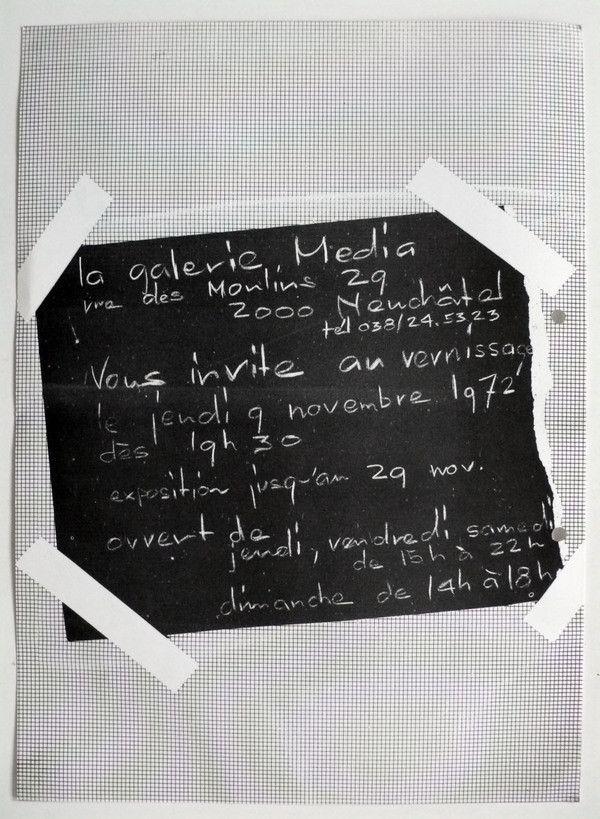 la galerie Media
rue des Moulins 29
2000 Neuchâtel
tél 038/24.5323
Vous invite au vernissage
le jeudi 9 novembre 1972
dès 19h30
exposition jusqu'au 29 nov.
ouvert de
jeudi, vendredi samedi
de 15h à 22h
dimanche de 14h à 18h